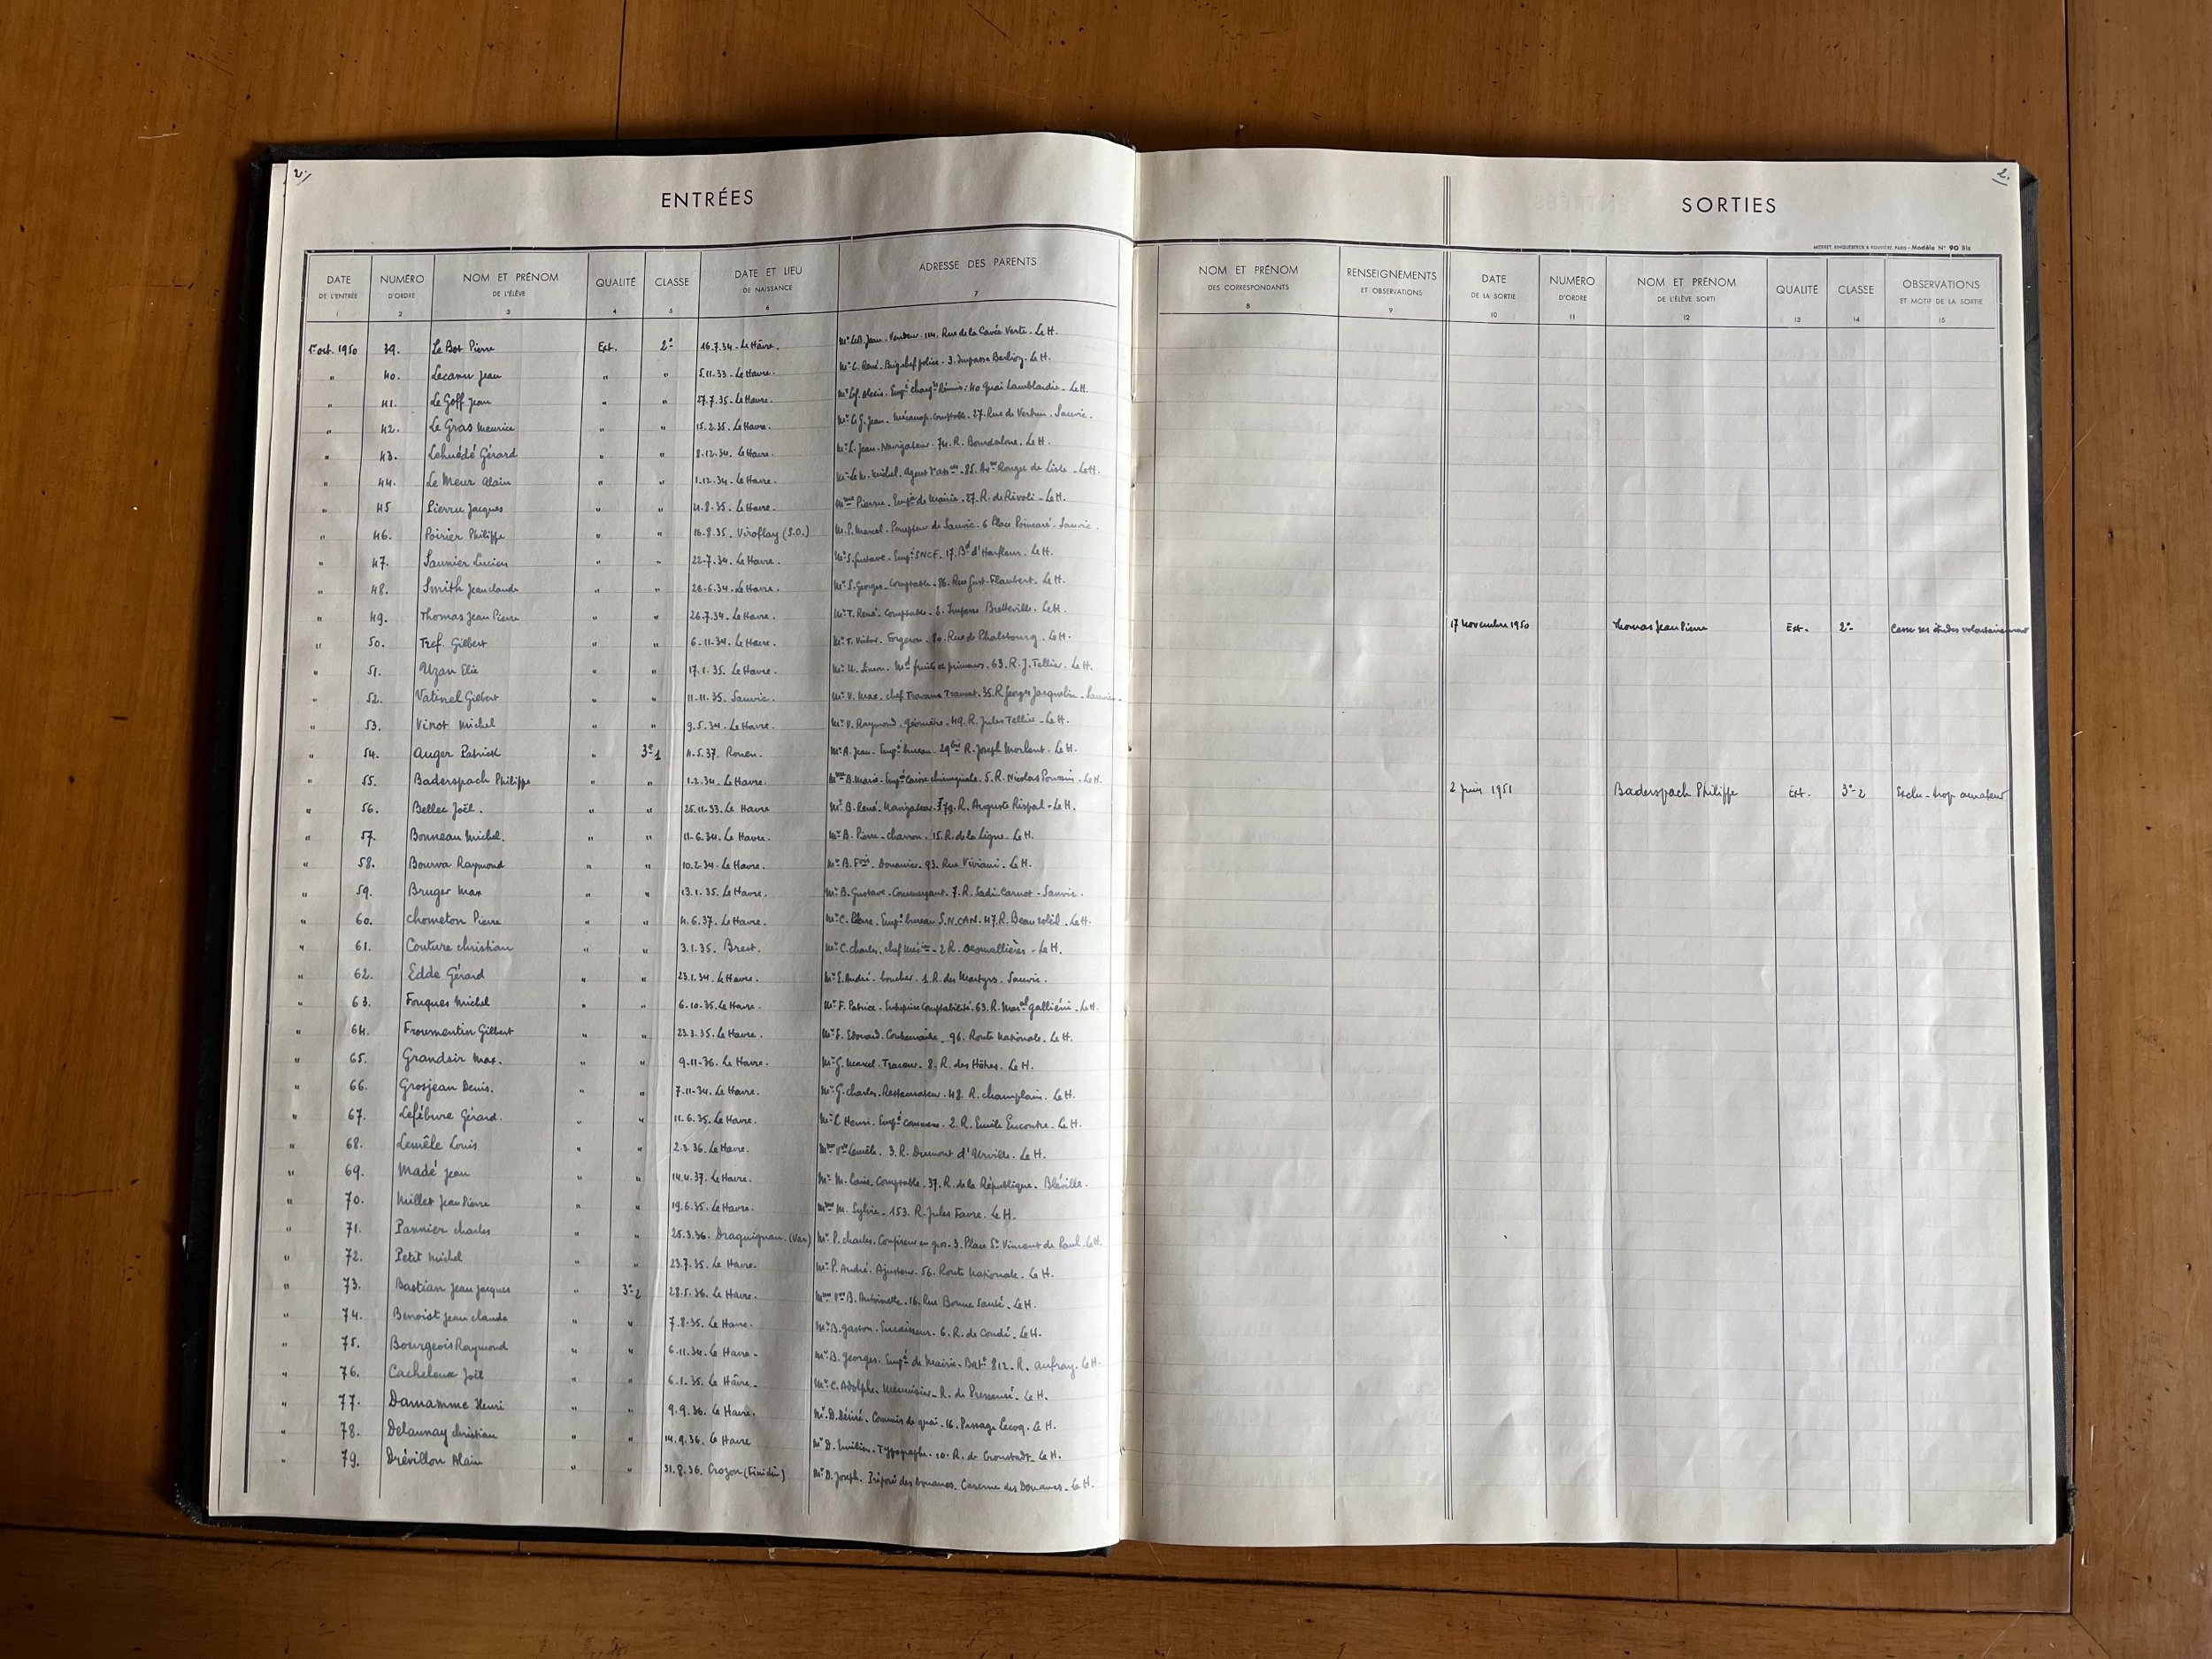 2./
ENTRÉES
DATE DE L'ENTRÉE 1
NUMÉRO D'ORDRE 2
NOM ET PRÉNOM DE L'ÉLÈVE 3
QUALITÉ 4
CLASSE 5
DATE ET LIEU DE NAISSANCE 6
ADRESSE DES PARENTS 7
1er oct. 1950 39. Le Bot Pierre Ext. 2e 16.7.34 - Le Hâvre. Mr LeB. Jean. Vendeur. 114. Rue de la Cavée Verte. Le H.
" 40. Lecanu Jean " " 5.11.33 - Le Havre. Mr L. René. Brig chef police. 3. Impasse Berlioz. Le H.
" 41. Le Goff Jean " " 27.7.35. Le Havre. Mr LeG. Alexis. Empé chargrs Réunis. 40 Quai Lamblardie. Le H.
" 42. Le Gras Maurice " " 15.2.35. Le Havre. Mr Le G. Jean. Mécanog. comptable. 27. Rue de Verdun. Sanvic.
" 43. Lehuédé Gérard " " 8.12.34. Le Havre. Mr L. Jean. Navigateur. 74. R. Bourdaloue. Le H.
" 44. Le Meur Alain " " 1.12.34 - Le Havre. Mr Le M. Michel. Agent d'assces. 85. Avue Rouget de Lisle - Le H.
" 45 Pierru Jacques " " 4.8.35. Le Havre. Mme Pierru. Empée de Mairie. 27. R. de Rivoli - Le H.
" 46. Poirier Philippe " " 16.8.35. Viroflay (S.O.) M. P. Marcel. Percepteur de Sanvic. 6 Place Poincaré. Sanvic.
" 47. Saunier Lucien " " 22.7.34. Le Havre. Mr S. Gustave. Empé SNCF. 17. Bd d'Harfleur. Le H.
" 48. Smith Jean claude " " 26.6.34. Le Havre. Mr S. Georges. Comptable. 86. Rue Gust. Flaubert. Le H.
" 49. Thomas Jean Pierre " " 26.7.34. Le Havre. Mr T. René. Comptable. 2. Impasse Bretteville. Le H.
" 50. Tref. Gilbert " " 6.11.34. Le Havre. Mr T. Victor. Forgeron. 80. Rue de Phalsbourg. Le H.
" 51. Uzan Elie " " 17.1.35. Le Havre. Mr U. Simon. Md fruits et primeurs. 63. R. J. Tellier. Le H.
" 52. Vatinel Gilbert " " 11.11.35. Sanvic. Mr V. Max. chef Travaux Tramat. 35. R Georges Jacquelin. Sanvic.
" 53. Vinot Michel " " 9.5.34. Le Havre. Mr V. Raymond. géomètre. 49. R. Jules Tellier. Le H.
" 54. Auger Patrick " 3e1 4.5.37. Rouen. Mr A. Jean. Empé bureau. 29bis R. Joseph Morlent. Le H.
" 55. Baderspach Philippe " " 1.2.34. Le Havre. Mme B. Marie. Empée Caisse chirurgicale. 5. R. Nicolas Poussin. Le H.
" 56. Bellec Joël. " " 25.11.33. Le Havre Mr B. René. Navigateur. 79. R. Auguste Rispal - Le H.
" 57. Bonneau Michel. " " 11.6.34. Le Havre. Mr B. Pierre - charron. 15. R. de la Ligne. Le H.
" 58. Bourva Raymond " " 10.2.34. Le Havre. Mr B. Fçois. Douanier. 93. Rue Viviani. Le H.
" 59. Bruger Max " " 13.1.35. Le Havre. Mr B. Gustave. Commerçant. 7. R. Sadi Carnot - Sanvic.
" 60. Chometon Pierre " " 4.6.37. Le Havre. Mr C. Pierre. Empé bureau S.N.CAN. 47. R. Beau soleil. Le H.
" 61. Couture christian " " 3.1.35. Brest. Mr C. charles. 2 R. Desmallières - Le H.
" 62. Edde Gérard " " 23.1.34. Le Havre. Mr E. André. boucher. 1. R. des Martyrs. Sanvic.
" 63. Fouques Michel " " 6.10.35. Le Havre. Mr F. Patrice. Entreprise Comptabilité. 63. R. Maral Galliéni. Le H.
" 64. Froumentin Gilbert " " 23.3.35. Le Havre. Mr F. Edouard. Contremaître. 96. Route Nationale. Le H.
" 65. Grandsir Max. " " 9.11.36. Le Havre. Mr G. Marcel. Traceur. 8. R. des Hêtres. Le H.
" 66. Grosjean Denis. " " 7.11.34. Le Havre. Mr G. charles. Restaurateur. 48. R. champlain. Le H.
" 67. Lefébure Gérard. " " 11.6.35. Le Havre. Mr L. Henri. Empé commerce. 2. R. Emile Encontre. Le H.
" 68. Lemêle Louis " " 2.3.36. Le Havre. Mme Vve Lemêle. 3. R. Dumont d'Urville. Le H.
" 69. Madé Jean " " 14.4.37. Le Havre. Mr M. Louis. Comptable. 37. R. de la République. Bléville.
" 70. Millet Jean Pierre " " 19.6.35. Le Havre. Mme M. Sylvie. 153. R. Jules Favre. Le H.
" 71. Pannier charles " " 25.3.36. Draguignan. (Var) Mr P. charles. Confiseur en gros. 3. Place St Vincent de Paul. Le H.
" 72. Petit Michel " " 23.7.35. Le Havre. Mr P. André. Ajusteur. 56. Route Nationale. Le H.
" 73. Bastian Jean Jacques " 3e2 28.5.36. Le Havre. Mme Vve B. Antoinette. 16. Rue Bonne Santé. Le H.
" 74. Benoist Jean claude " " 7.8.35. Le Havre. Mr B. Gaston. Encaisseur. 6. R. de Condé. Le H.
" 75. Bourgeois Raymond " " 6.11.34. Le Havre. Mr B. Georges. Empé de Mairie. Batt 812. R. Aufray. Le H.
" 76. Cacheleux Joël " " 6.1.35. Le Hâvre. Mr C. Adolphe. Menuisier. R. de Pressensé. Le H.
" 77. Damamme Henri " " 9.9.36. Le Havre. Mr D. Désiré. Commis de quai. 16. Passage Lecoq. Le H.
" 78. Delaunay christian " " 14.9.36. Le Havre Mr D. Emilien. Typographe. 10. R. de Cronstadt. Le H.
" 79. Drévillon Alain " " 31.8.36. Crozon (Finistère) Mr D. Joseph. Préposé des Douanes. Caserne des Douanes. Le H.
2.
SORTIES
MODÈLE N° 90 Bis
NOM ET PRÉNOM DES CORRESPONDANTS 8
RENSEIGNEMENTS ET OBSERVATIONS 9
DATE DE LA SORTIE 10
NUMÉRO D'ORDRE 11
NOM ET PRÉNOM DE L'ÉLÈVE SORTI 12
QUALITÉ 13
CLASSE 14
OBSERVATIONS ET MOTIF DE LA SORTIE 15
17 novembre 1950 Thomas Jean Pierre Ext. 2e Cesse ses études volontairement
2 juin 1951 Baderspach Philippe Ext. 3e2 Exclu - trop amateur